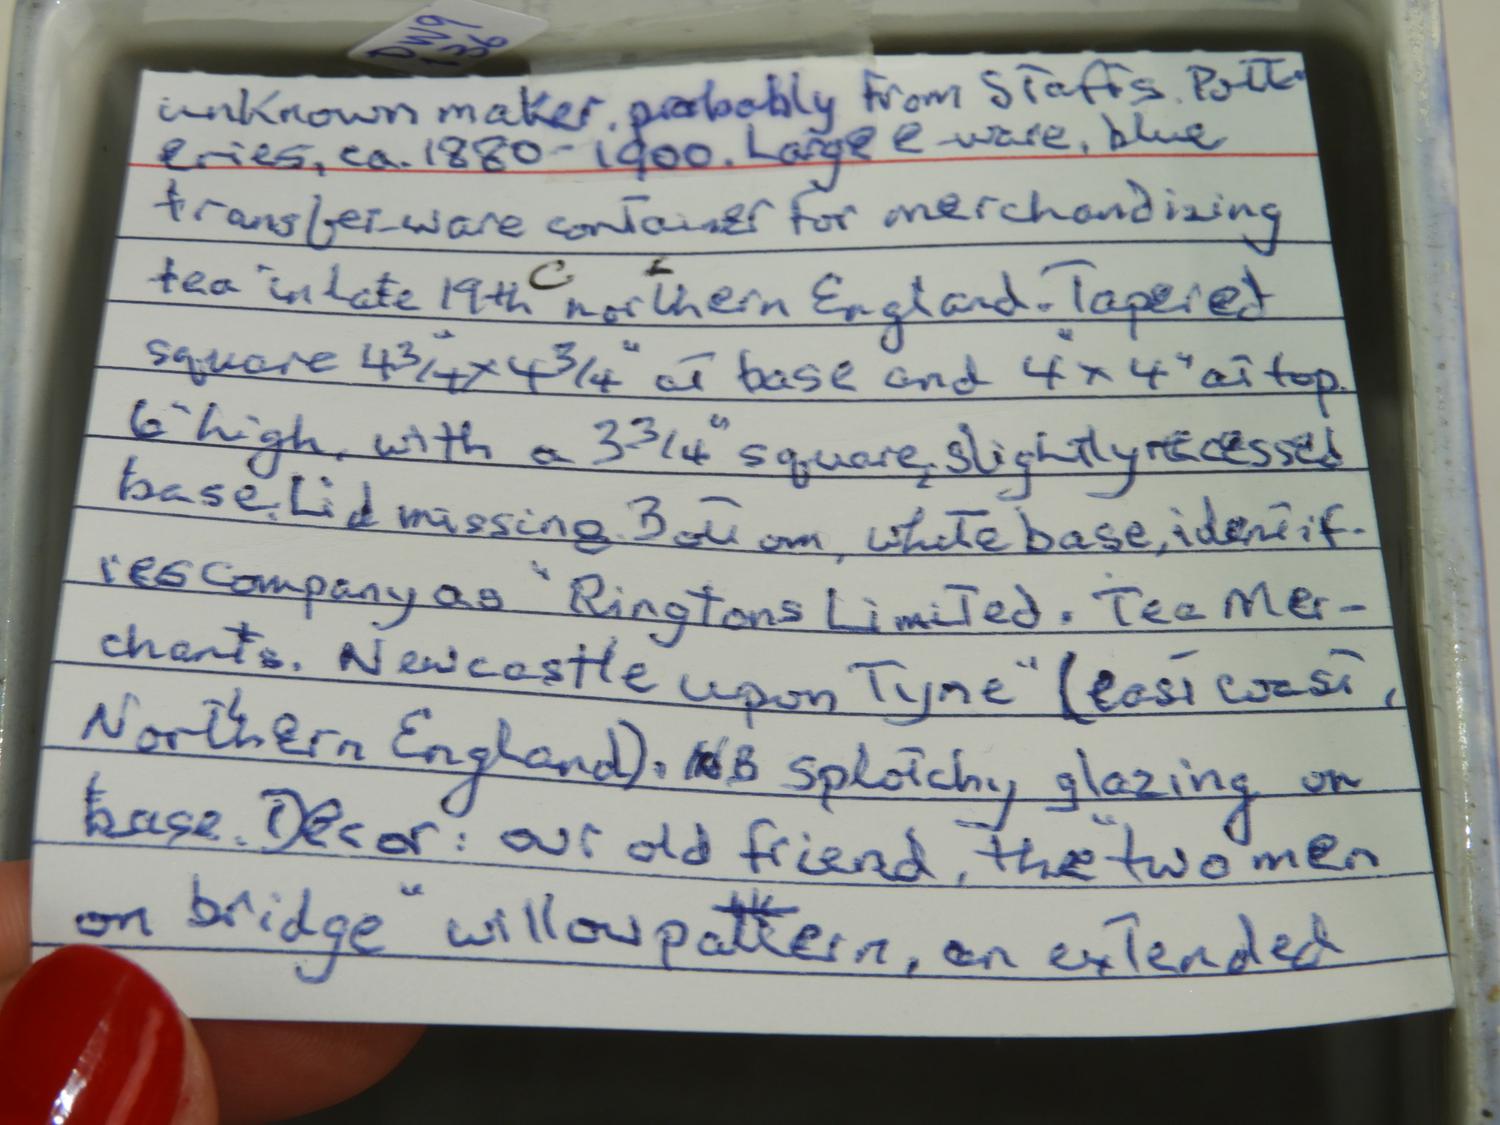 DW9
136
unknown maker, probably from Staffs. Pott-
eries, ca. 1880-1900. Large e-ware, blue
transfer-ware container for merchandizing
tea in late 19th C northern England. Tapered
square 4 3/4" x 4 3/4" at base and 4" x 4" at top.
6" high, with a 3 3/4" square, slightly recessed
base. Lid missing. Bottom, white base, identif-
ies company as "Ringtons Limited. Tea Mer-
chants. Newcastle upon Tyne" (east coast,
Northern England). NB splotchy glazing on
base. Decor: our old friend, the "two men
on bridge" willow pattern, an extended